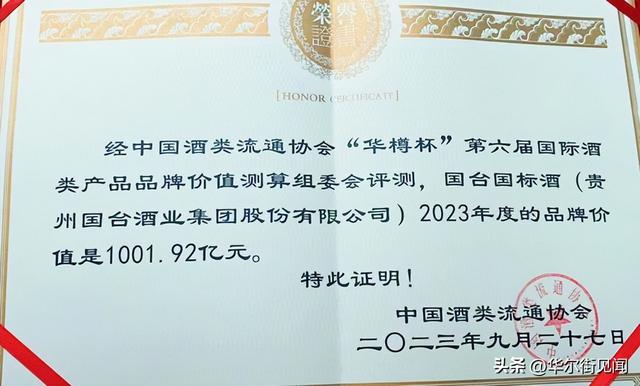 榮譽
證書
[HONOR CERTIFICATE]
经中国酒类流通协会“华樽杯”第六届国际酒
类产品品牌价值测算组委会评测，国台国标酒（贵
州国台酒业集团股份有限公司）2023年度的品牌价
值是1001.92亿元。
特此证明！
中国酒类流通协会
二〇二三年九月二十七日
中国酒类流通协会
头条@华尔街见闻